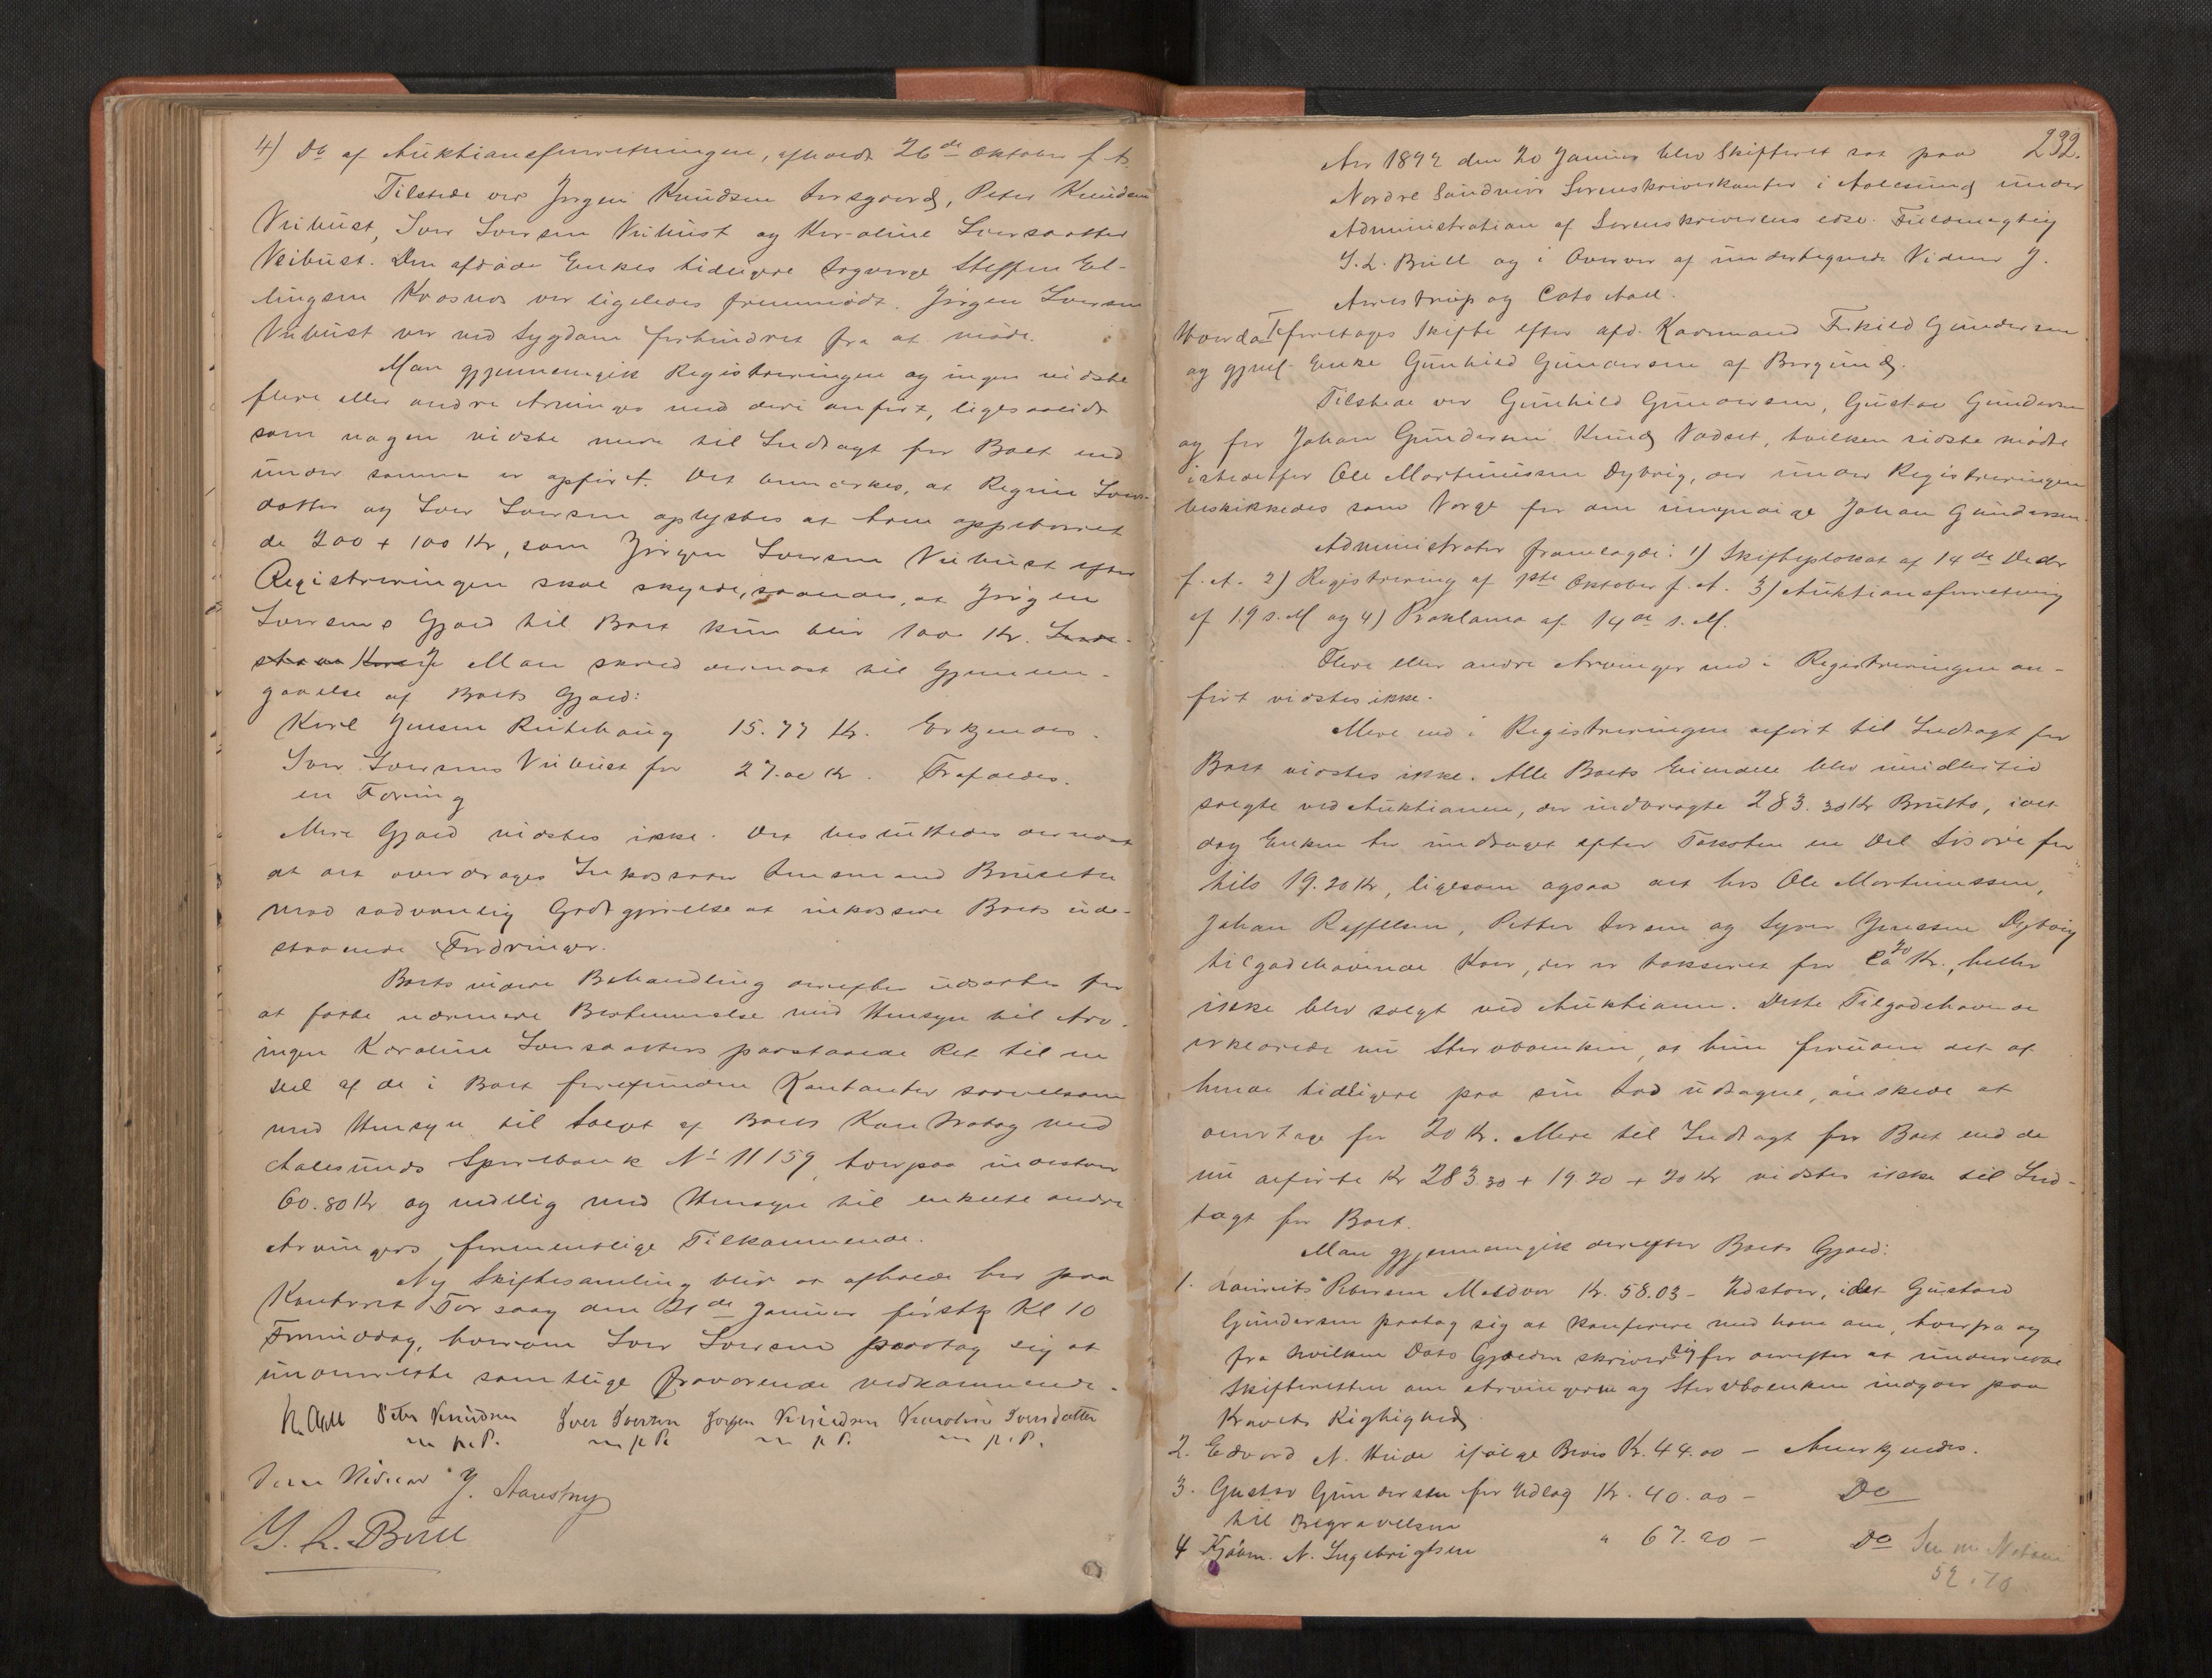 4) Do af Auktionsforretningen, afholdt 26de Oktober f. A.
Tilstede var Jørgen Knudsen Aarsgaard, Peter Knudsen
Veibust, Iver Iversen Veibust og Karoline Iversdatter
Veibust. Den afdøde Enkes tidligere Lagværge Steffen El-
lingsen Krosnes var ligeledes fremmødt. Jørgen Iversen
Veibust var ved Sygdom forhindret fra at møde.
Man gjennemgik Registreringen og ingen vidste
flere eller andre Arvinger end deri anført, ligesaalidt
som nogen vidste mere til Indtægt for Boet end
under samme er opført. Det bemærkes, at Regine Ivers-
datter og Iver Iversen oplystes at have oppebaaret
de 200 + 100 Kr, som Jørgen Iversen Veibust efter
Registreringen skal skylde, saaledes, at Jørgen
Iversens Gjæld til Boet kun blir 100 Kr.
Man skred dernæst til Gjennem-
gaaelse af Boets Gjæld:
Karl Jensen Rutehaug 15.77 Kr. Erkjendes.
Iver Iversens Veibust for 27.00 Kr. Frafaldes.
en Foring
Mere Gjæld vidstes ikke. Det besluttedes dernæst
at det overdrages Inkassator Lensmand
mod sædvanlig Godtgjørelse at inkassere Boets ude-
staaende Fordringer.
Boets videre Behandling derefter udsattes for
at fatte nærmere Bestemmelse med Hensyn til Arv-
ingen Karoline Iversdatters paastaaede Ret til en
Del af de i Boet forefundne Kontanter saavelsom
med Hensyn til Salget af Boets Kontrabog med
Aalesunds Sparebank No 11159, hvorpaa indestaar
60.80 Kr og endelig med Hensyn til enkelte andre
Arvingers formentlige Tilkommende.
Ny Skiftesamling blir at afholde her paa
Kontoret Torsdag den 21de Januar førstk. Kl 10
Formiddag, hvorom Iver Iversen paatog sig at
underrette samtlige fraværende vedkommende.
K. Aall Peter Knudsen Iver Iversen Jørgen Knudsen Karoline Iversdatter
m. p. P. m p P. m p P. m. p. P.
Som Vidner J.
J. L. Bull
232.
Aar 1892 den 20 Januar blev Skifteret sat paa
Nordre Søndmørs Sorenskriverkontor i Aalesund under
Administration af Sorenskriverens edsv. Fuldmægtig
J. L. Bull og i Overvær af undertegnede Vidner J.
og Cato Aall.
Hvorda foretoges Skifte efter afd. Kaarmand Gundersen
og gjenl. Enke Gunhild Gundersen af Borgund.
Tilstede var Gunhild Gundersen, Gustav Gundersen
og for Johan Gundersen Knud Vadset, hvilken sidste mødte
istedetfor Ole Martinussen Dybvig, der under Registreringen
beskikkedes som Værge for den umyndige Johan Gundersen.
Administrator fremlagde: 1) Skifteplakat af 14de Decbr
f. A. 2) Registrering af 1ste Oktober f. A. 3) Auktionsforretning
af 19 s. M og 4) Proklama af 14de s. M.
Flere eller andre Arvinger end i Registreringen an-
ført vidstes ikke.
Mere end i Registreringen anført til Indtægt for
Boet vidstes ikke. Alle Boets Eiendele blev imidlertid
solgte ved Auktionen, der indbragte 283.30 Kr Brutto, idet
dog Enken har undtaget efter Taksten en Del Løsøre for
tils 19.20 Kr, ligesom ogsaa det hos Ole Martinussen,
Johan Raffelsen, Petter Larsen og Syver Jenssen Dybvig
tilgodehavende Kaar, der er takseret for 20 Kr., heller
ikke blev solgt ved Auktionen. Dette Tilgodehavende
erklærede nu Stervboenken, at hun foruden det af
hende tidligere paa sin Lod udtagne, ønskede at
overtage for 20 Kr. Mere til Indtægt for Boet end de
nu anførte Kr 283.30 + 19.20 + 20 Kr vidstes ikke til Ind-
tægt for Boet.
Man gjennemgik derefter Boets Gjæld:
1. Laurits Petersen Moldvær Kr. 58.03 - Udstaar, idet Gustav
Gundersen paatog sig at konferere med ham om, hvorfra og
fra hvilken Dato Gjælden skriver sig for derefter at underrette
Skifteretten om Arvingerne og Stervboenken indgaar paa
Kravets Rigtighed.
2. Edvard N. Hude ifølge Bevis Kr. 44.00 - Anerkjendes.
3. Gustav Gundersen for Udlæg Kr. 40.00 - Do
til Begravelsen
4 Kjøbm. N. Ingebrigtsen " 67.20 - Do